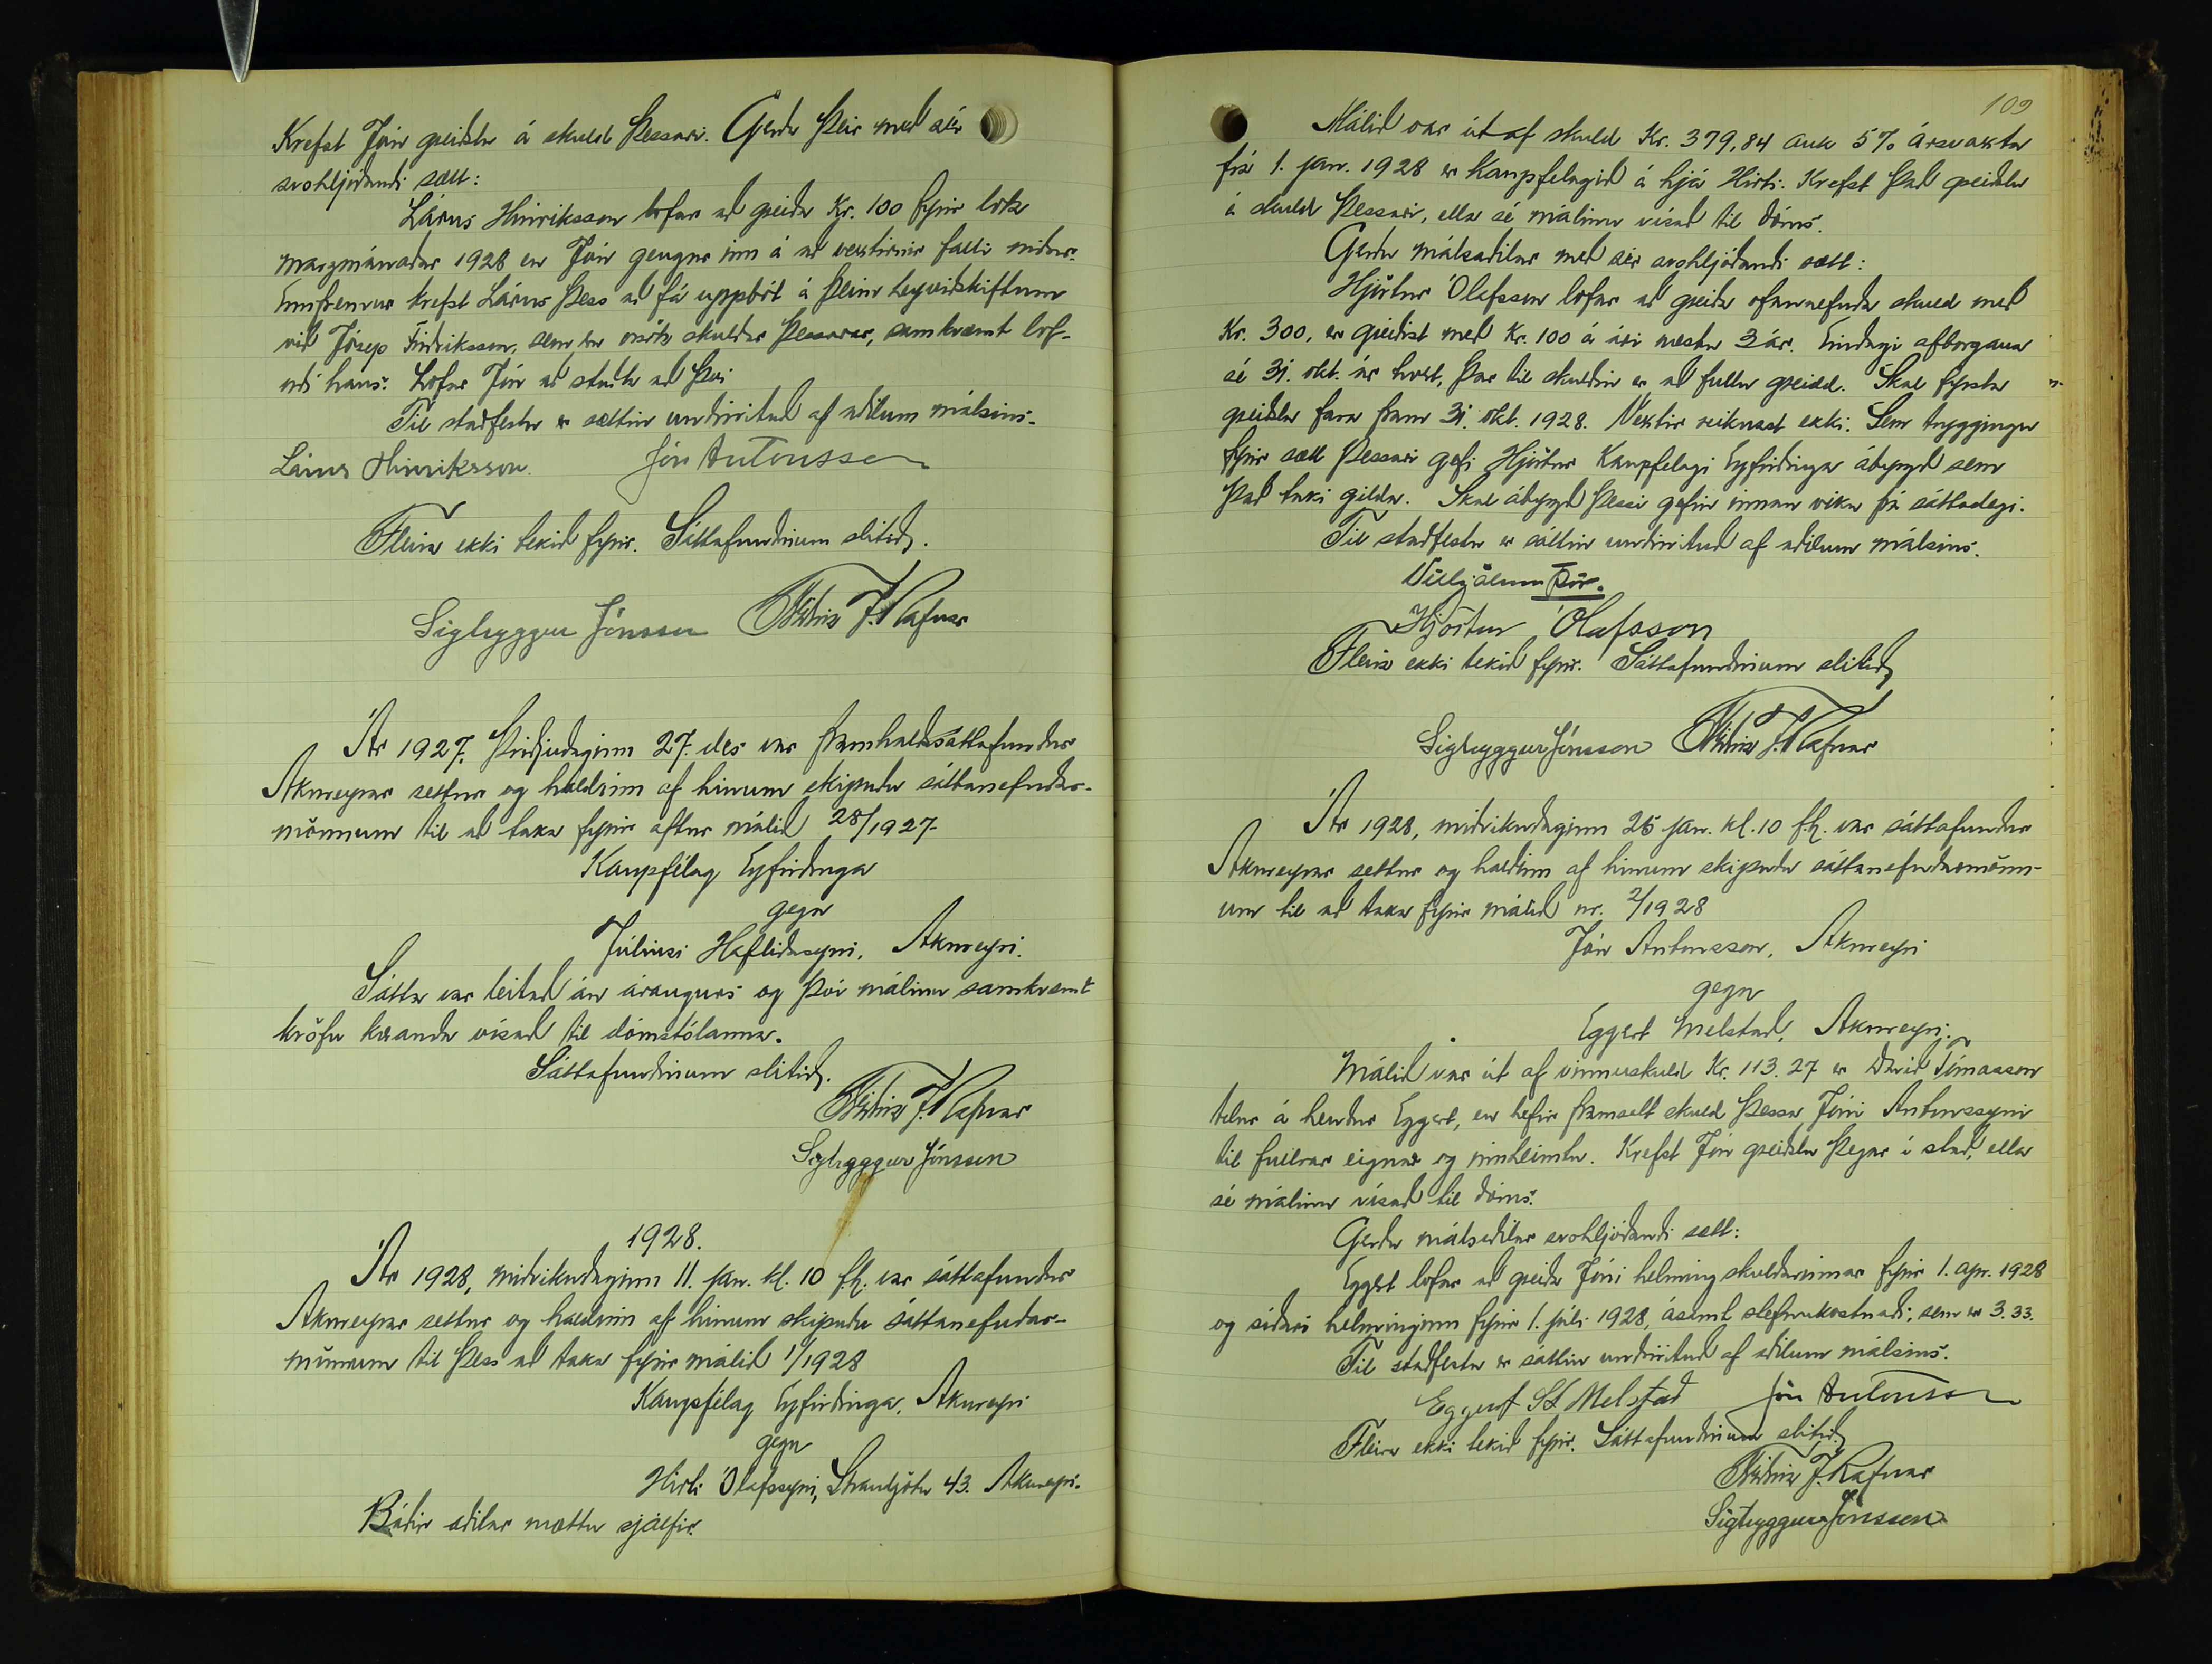 Krefst Jón greiðslu á skuld þessari. Gerðu þeir með sér
svohljóðandi sætt:
Lárus Hinriksson lofar að greiða Kr. 100 fyrir lok
marzmánaðar 1928 en Jón gengur inn á að vextirnir falli niður.
Ennfremur krefst Lárus þess að fá uppbót á þeim heyviðskiftum
við Jósep Friðriksson, sem er orsök skuldar þessarar, samkvæmt lof-
orði hans. Lofar Jón að stuðla að því
Til staðfestu er sættin undirrituð af aðilum málsins.
Lárus Hinriksson. Jón Antonsson
Fleira ekki tekið fyrir. Sáttafundinum slitið.
Sigtryggur Jónsson Friðrik J. Rafnar
Ár 1927, þriðjudaginn 27. des var framhaldssáttafundur
Akureyrar settur og haldinn af hinum skipuðu sáttanefndar-
mönnum til að taka fyrir aftur málið 28/1927-
Kaupfélag Eyfirðinga
gegn
Júlíusi Hafliðasyni, Akureyri.
Sátta var leitað án árangurs og því málinu samkvæmt
kröfu kæranda vísað til dómstólanna.
Sáttafundinum slitið.
Friðrik J. Rafnar
Sigtryggur Jónsson
1928.
Ár 1928, miðvikudaginn 11. jan. kl. 10 fh. var sáttafundur
Akureyrar settur og haldinn af hinum skipuðu sáttanefndar-
mönnum til þess að taka fyrir málið 1/1928
Kaupfélag Eyfirðinga, Akureyri
gegn
Hirti Ólafssyni, Strandgötu 43. Akureyri.
Báðir aðilar mættu sjálfir.
109
Málið var út af skuld Kr. 379,84 auk 5% ársvaxta
frá 1. jan. 1928 er Kaupfelagið á hjá Hirti. Krefst það greiðslu
á skuld þessari, ella sé málinu vísað til dóms.
Gerðu málsaðilar með sér svohljóðandi sætt:
Hjörtur Ólafsson lofar að greiða ofannefnda skuld með
Kr. 300, er greiðist með Kr. 100 á ári næstu 3 ár. Eindagi afborgana
sé 31. okt. ár hvert, þar til skuldin er að fullu greidd. Skal fyrsta
greiðsla fara fram 31. okt. 1928. Vextir reiknast ekki. Sem tryggingu
fyrir sætt þessari gefi Hjörtur Kaupfelagi Eyfirðinga ábyrgð sem
það taki gilda. Skal ábyrgð þessi gefin innan viku frá sáttadegi.
Til staðfestu er sáttin undirrituð af aðilum málsins.
Vilhjálmur Þór.
Hjörtur Ólafsson
Fleira ekki tekið fyrir. Sáttafundinum slitið
Sigtryggur Jónsson Friðrik J. Rafnar
Ár 1928, miðvikudaginn 25 jan. kl. 10 f.h. var sáttafundur
Akureyrar settur og haldinn af hinum skipuðu sáttanefndarmönn-
um til að taka fyrir málið nr. 2/1928
Jón Antonsson, Akureyri
gegn
Eggert Melstað, Akureyri.
Málið var út af vinnuskuld Kr. 113.27 er Davíð Tómasson
telur á hendur Eggert, en hefir framselt skuld þessa Jóni Antonssyni
til fullrar eignar og innheimtu. Krefst Jón greiðslu þegar í stað, ella
sé málinu vísað til dóms.
Gerðu málsaðilar svohljóðandi sætt:
Eggert lofar að greiða Jóni helming skuldarinnar fyrir 1. apr. 1928
og síðari helminginn fyrir 1. júlí 1928, ásamt stefnukostnaði, sem er 3.33.
Til staðfestu er sáttin undirrituð af aðilum málsins.
Eggert St Melstað Jón Antonsson
Fleira ekki tekið fyrir. Sáttafundinum slitið.
Friðrik J. Rafnar
Sigtryggur Jónsson